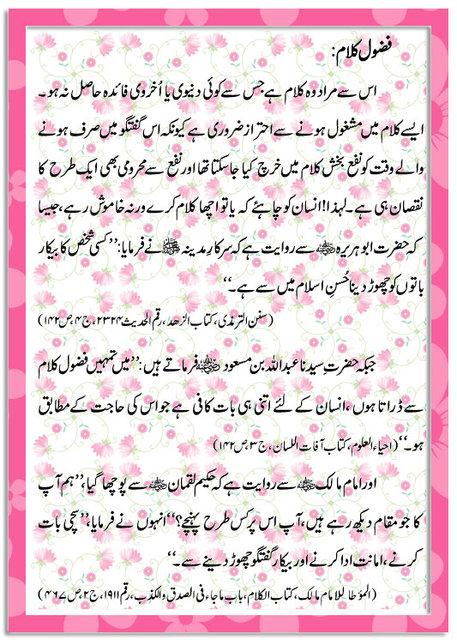 فضول کلام:
اس سے مراد وہ کلام ہے جس سے کوئی دنیوی یا اُخروی فائدہ حاصل نہ ہو۔
ایسے کلام میں مشغول ہونے سے احتراز ضروری ہے کیونکہ اس گفتگو میں صرف ہونے
والے وقت کو نفع بخش کلام میں خرچ کیا جاسکتا تھا اور نفع سے محرومی بھی ایک طرح کا
نقصان ہی ہے۔ لہٰذا! انسان کو چاہئے کہ یا تو اچھا کلام کرے ورنہ خاموش رہے، جیسا
کہ حضرت ابو ہریرہ رضی اللہ عنہ سے روایت ہے کہ سرکارِ مدینہ ﷺ نے فرمایا: ’’کسی شخص کا بیکار
باتوں کو چھوڑ دینا حُسنِ اسلام میں سے ہے۔‘‘
(سنن الترمذی، کتاب الزھد، رقم الحدیث ۲۳۲۴، ج۴، ص۱۴۲)
جبکہ حضرتِ سیدنا عبداللہ بن مسعود رضی اللہ عنہ فرماتے ہیں: ’’میں تمہیں فضول کلام
سے ڈراتا ہوں، انسان کے لئے اتنی ہی بات کافی ہے جو اس کی حاجت کے مطابق
ہو۔‘‘ (احیاء العلوم، کتاب آفات اللسان، ج۳، ص۱۴۲)
اور امام مالک رضی اللہ عنہ سے روایت ہے کہ حکیم لقمان رضی اللہ عنہ سے پوچھا گیا، ’’ہم آپ
کا جو مقام دیکھ رہے ہیں، آپ اس پر کس طرح پہنچے؟‘‘ انہوں نے فرمایا، ’’سچی بات
کرنے، امانت ادا کرنے اور بیکار گفتگو چھوڑ دینے سے۔‘‘
(المؤطا للامام مالک، کتاب الکلام، باب ماجاء فی الصدق والکذب، رقم ۱۹۱۱، ج۲، ص۴۶۷)